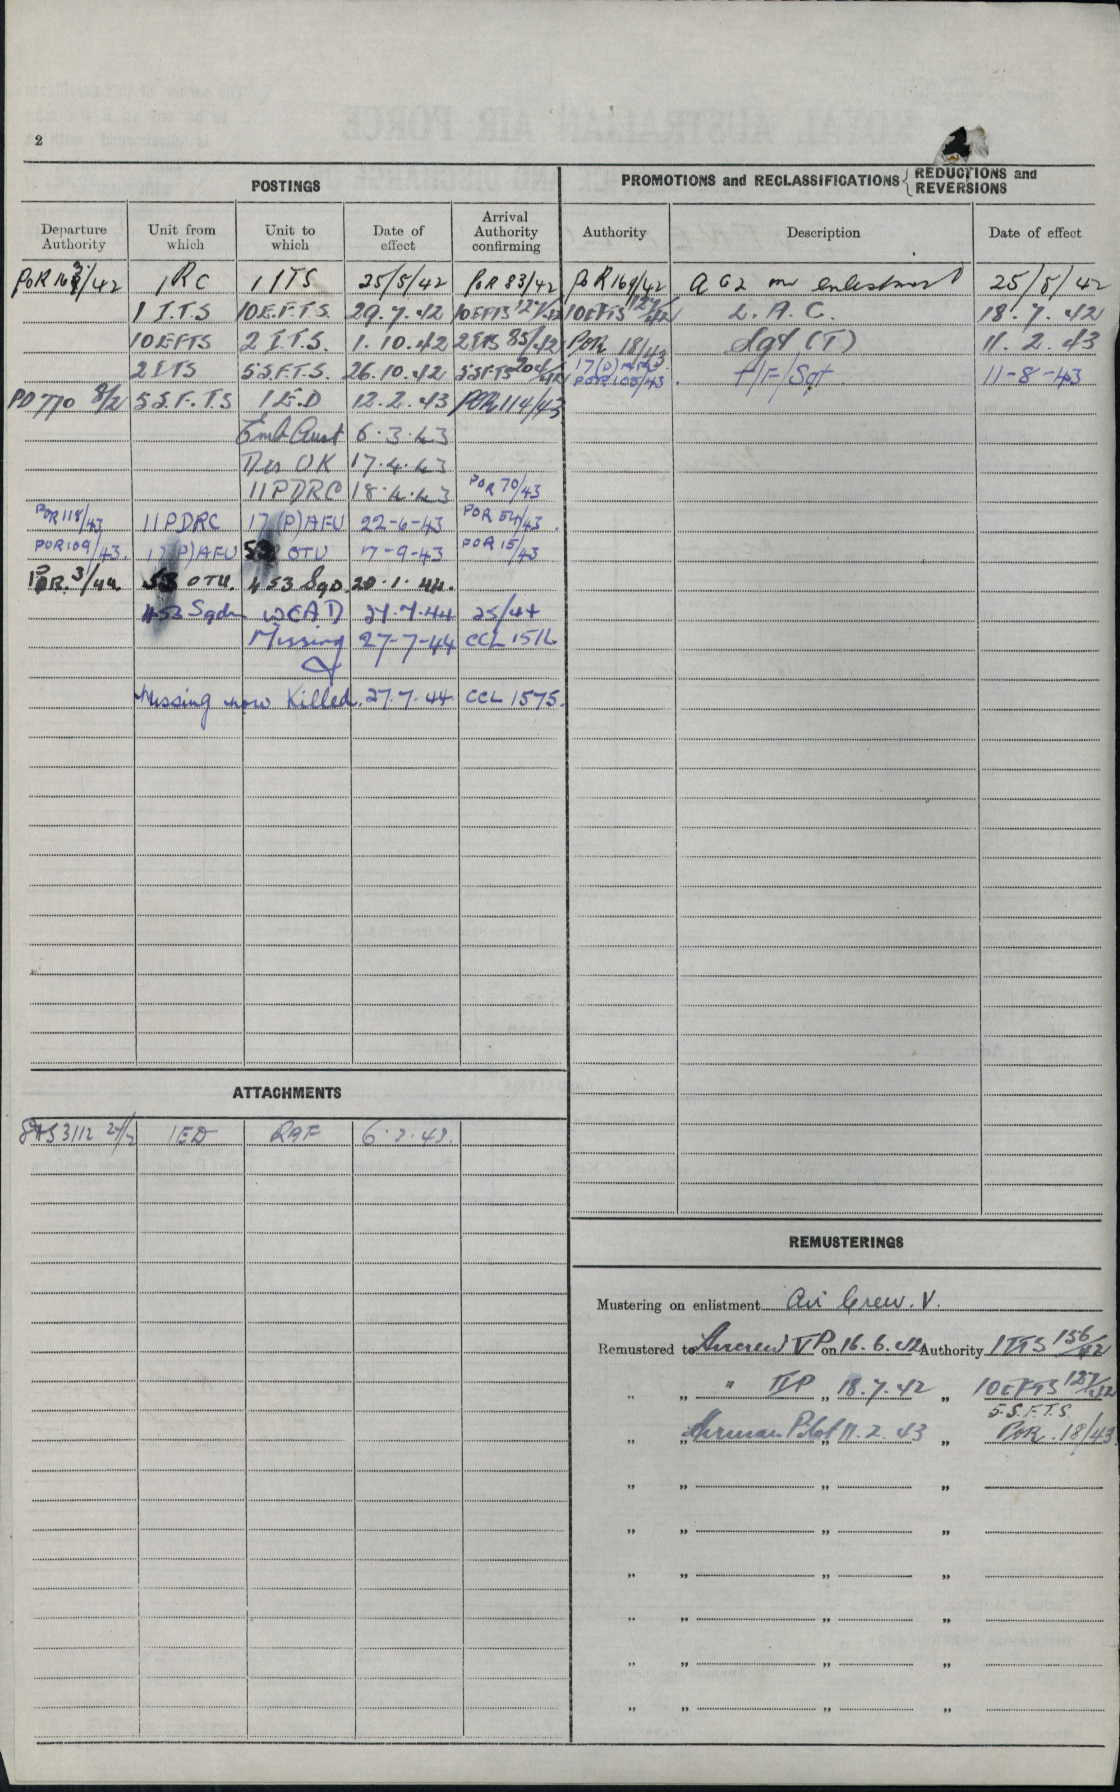 2
POSTINGS
Departure Authority Unit from which Unit to which Date of effect Arrival Authority confirming
1 RC 1 ITS 25/5/42 POR 83/42
1 I.T.S 10 E.F.T.S. 29.7.42 10 EFTS 127/42
10 EFTS 2 I.T.S. 1.10.42 2 ITS 85/42
2 ITS 5 S.F.T.S. 26.10.42 5 SFTS
PD 770 8/2 5 S.F.T.S 1 E.D 12.2.43 POR 114/43
Emb Aust 6.3.43
Dis UK 17.4.43
11 PDRC 18.4.43 POR 70/43
POR 118/43 11 PDRC 17 (P) AFU 22-6-43 POR 54/43.
POR 109/43. 17 (P) AFU 53 OTU 7-9-43 POR 15/43
POR. 3/44. 53 OTU. 453 Sqd. 20.1.44.
453 Sqdn WEAD 27.7.44 25/44
Missing 27-7-44 CCL 1516
Missing now Killed. 27.7.44 CCL 1575.
PROMOTIONS and RECLASSIFICATIONS { REDUCTIONS and REVERSIONS
Authority Description Date of effect
POR 169/42 AC2 on enlistment 25/5/42
10 EFTS 127/42 L.A.C. 18.7.42
POR 18/43 Sgt (T) 11.2.43
POR 105/43. T/F/Sgt 11-8-43
ATTACHMENTS
1 ED RAF 6.3.43.
REMUSTERINGS
Mustering on enlistment Air Crew. V.
Remustered to Aircrew V P on 16.6.42 Authority 1 ITS 156/42
„ „ " II P „ 18.7.42 „ 10 EFTS 127/42
5 S.F.T.S
„ „ Airman Pilot „ 11.2.43 „ POR. 18/43
„ „ „ „
„ „ „ „
„ „ „ „
„ „ „ „
„ „ „ „
„ „ „ „